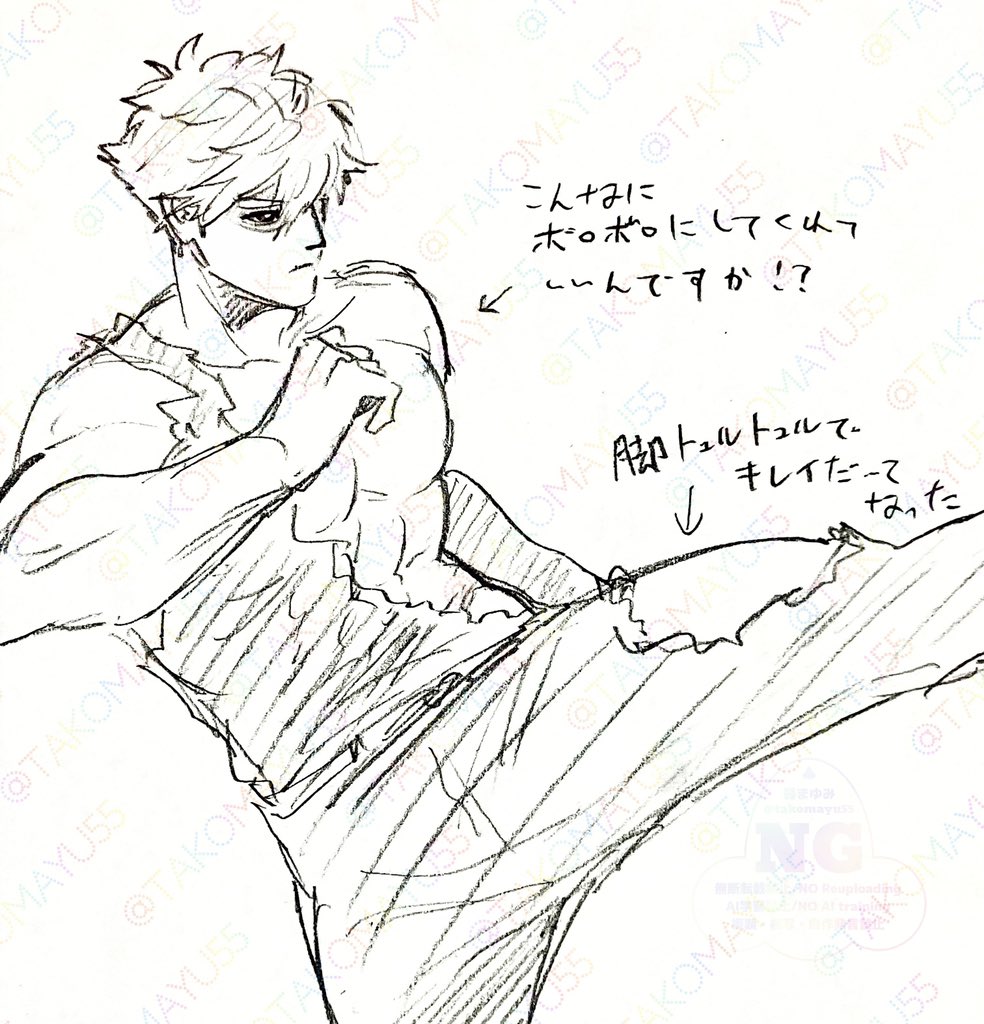 こんなに
ボロボロにしてくれて
いいんですか!?
脚トゥルトゥルで
キレイだって
なった
@TAKOMAYU55
@takomayu55
NG
無断転載禁止/NO Reuploading
AI学習禁止/NO AI training